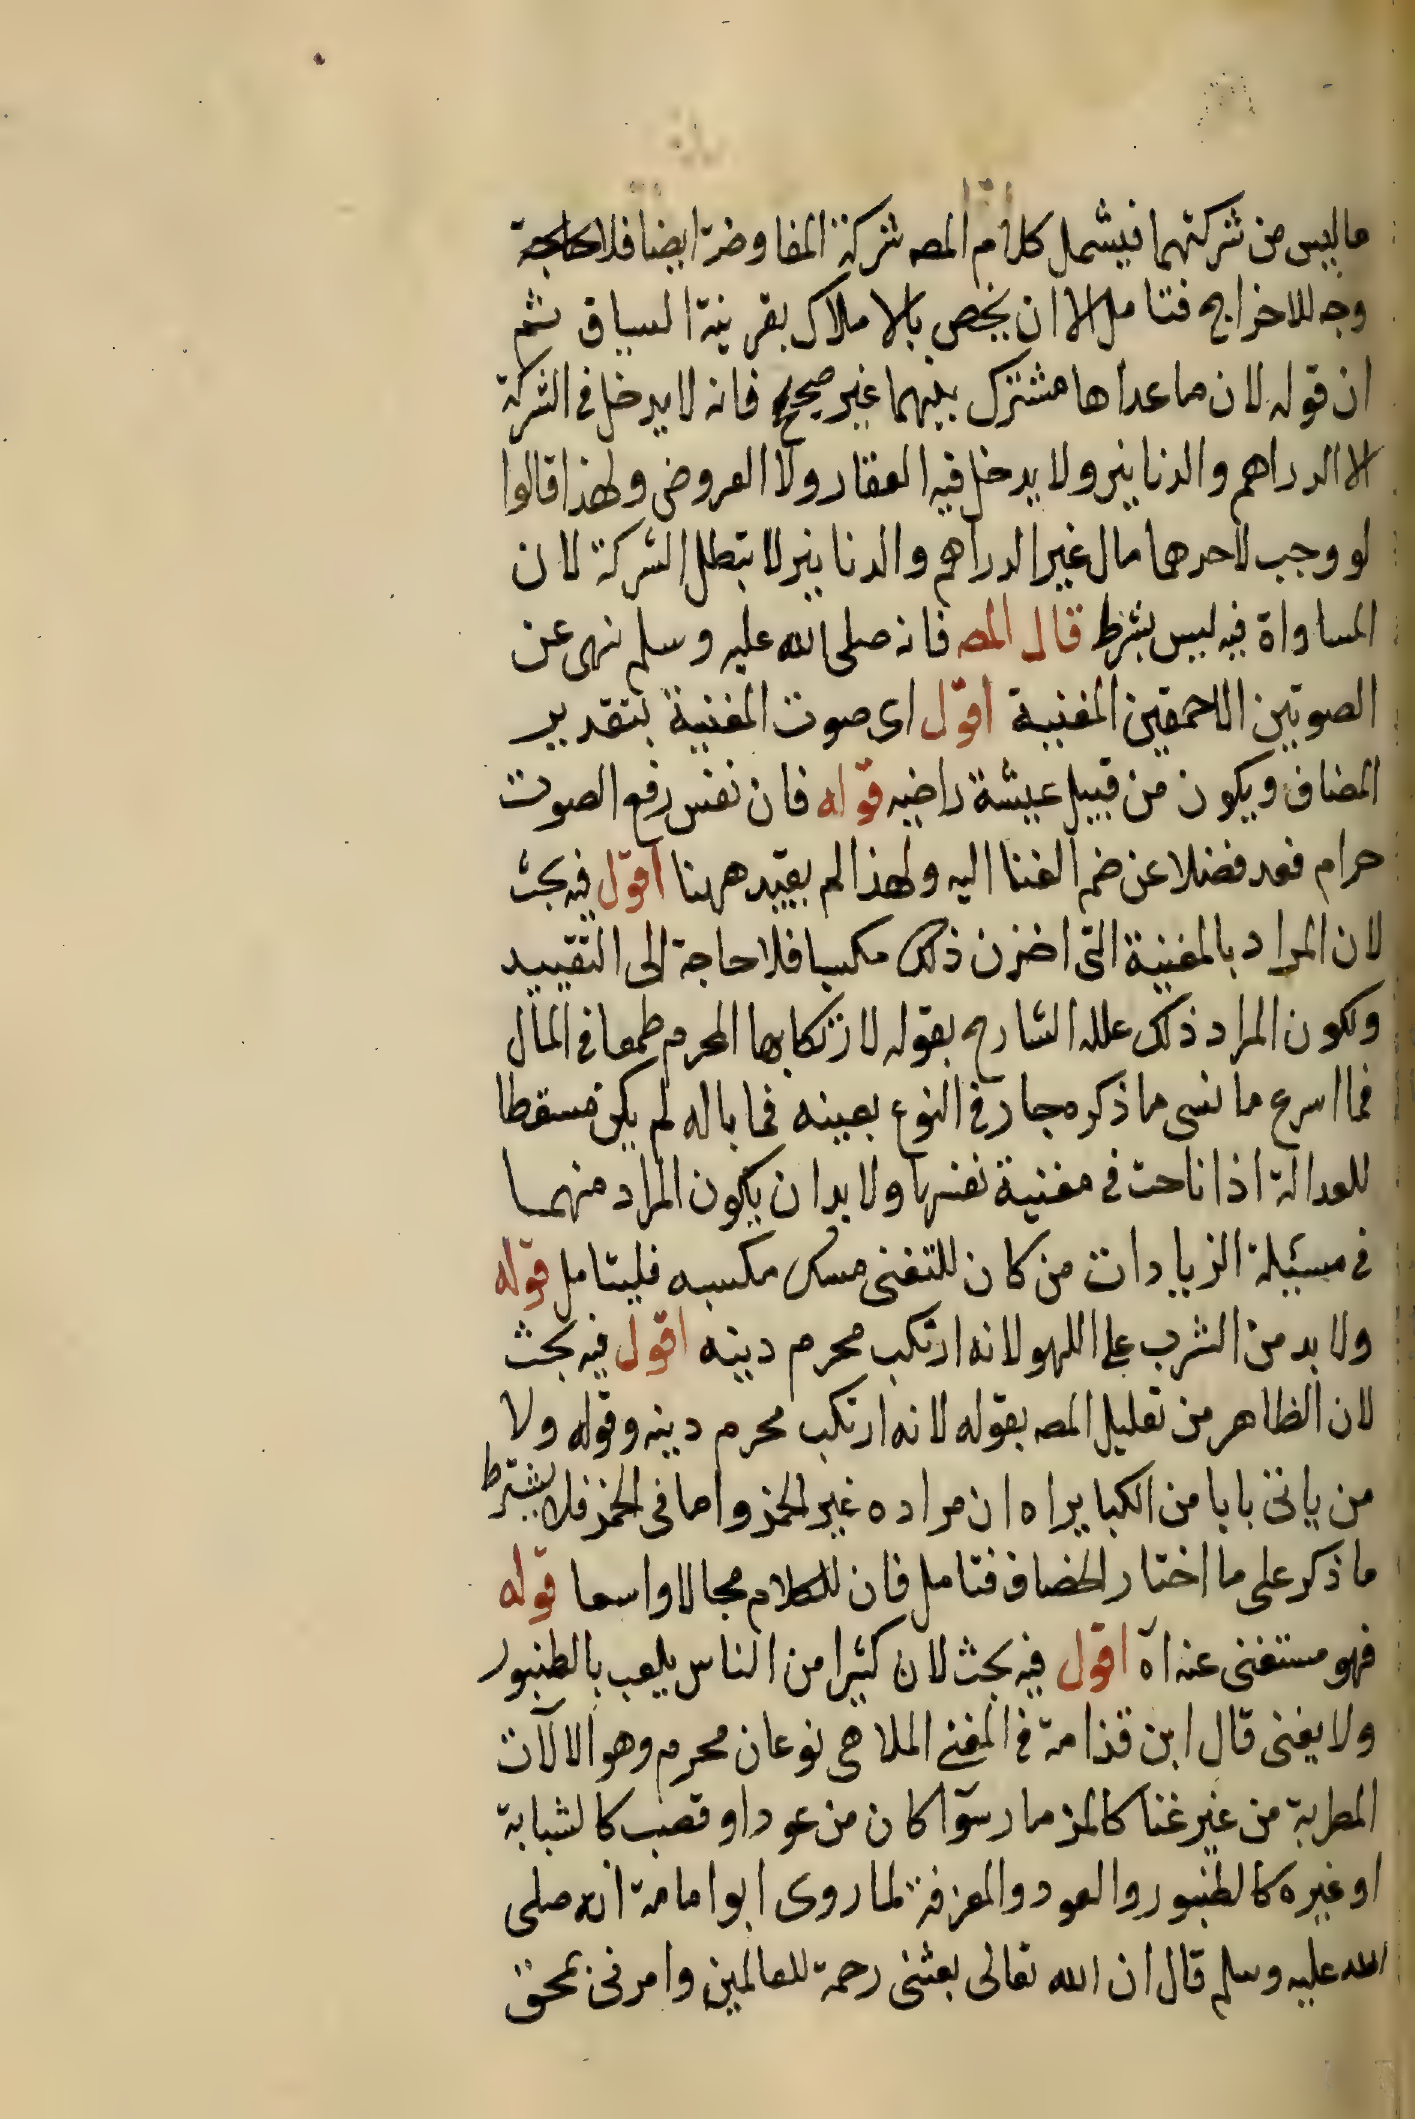 ما ليس من شركتهما فيشمل كلام المصہ شركة المفاوضة ايضا فلا حاجة
وجه للاخراج فتامل الا ان يخص بالاملاك بقرينة السياق ثم
ان قوله لان ما عداها مشترك بينهما غير صحيح فانه لا يدخل في الشركة
الا الدراهم والدنانير ولا يدخل فيه العقار ولا العروض ولهذا قالوا
لو وجب لاحدهما مال غير الدراهم والدنانير لا تبطل الشركة لان
المساواة فيه ليس بشرط قال المصہ فانه صلى الله عليه وسلم نهى عن
الصوتين الاحمقين المغنية اقول اى صوت المغنية بتقدير
المضاف ويكون من قبيل عيشة راضيه قوله فان نفس رفع الصوت
حرام فعد فضلا عن ضم الغنا اليه ولهذا لم يقيد ههنا اقول فيه بحث
لان المراد بالمغنية التى اخذن ذلك مكسبا فلا حاجة الى التقييد
ولكون المراد ذلك علله الشارح بقوله لارتكابها المحرم طمعا في المال
فما اسرع ما نسى ما ذكره مجار في النوع بعينه فما باله لم يكن مسقطا
للعدالة اذا ناحت في مغنية نفسها ولا بد ان يكون المراد منهما
في مسئلة الزيادات من كان للتغنى مسكه مكسبه فليتامل قوله
ولا بد من الشرب على اللهو لانه ارتكب محرم دينه اقول فيه بحث
لان الظاهر من تعليل المصہ بقوله لانه ارتكب محرم دينه وقوله ولا
من ياتى بابا من الكباير اه ان مراده غير الخمر واما في الخمر فلا يشترط
ما ذكر على ما اختار الخصاف فتامل فان للكلام مجالا واسعا قوله
فهو مستغنى عنه آه اقول فيه بحث لان كثيرا من الناس يلعب بالطنبور
ولا يغنى قال ابن قذامة في المغنے الملاهى نوعان محرم وهو الالآت
المطربة من غير غنا كالمزمار سوآ كان من عود او قصب كالشبابة
او غيره كالطنبور والعود والمعزفة لما روى ابو امامة انه صلى
الله عليه وسلم قال ان الله تعالى بعثنى رحمة للعالمين وامرنى بمحق